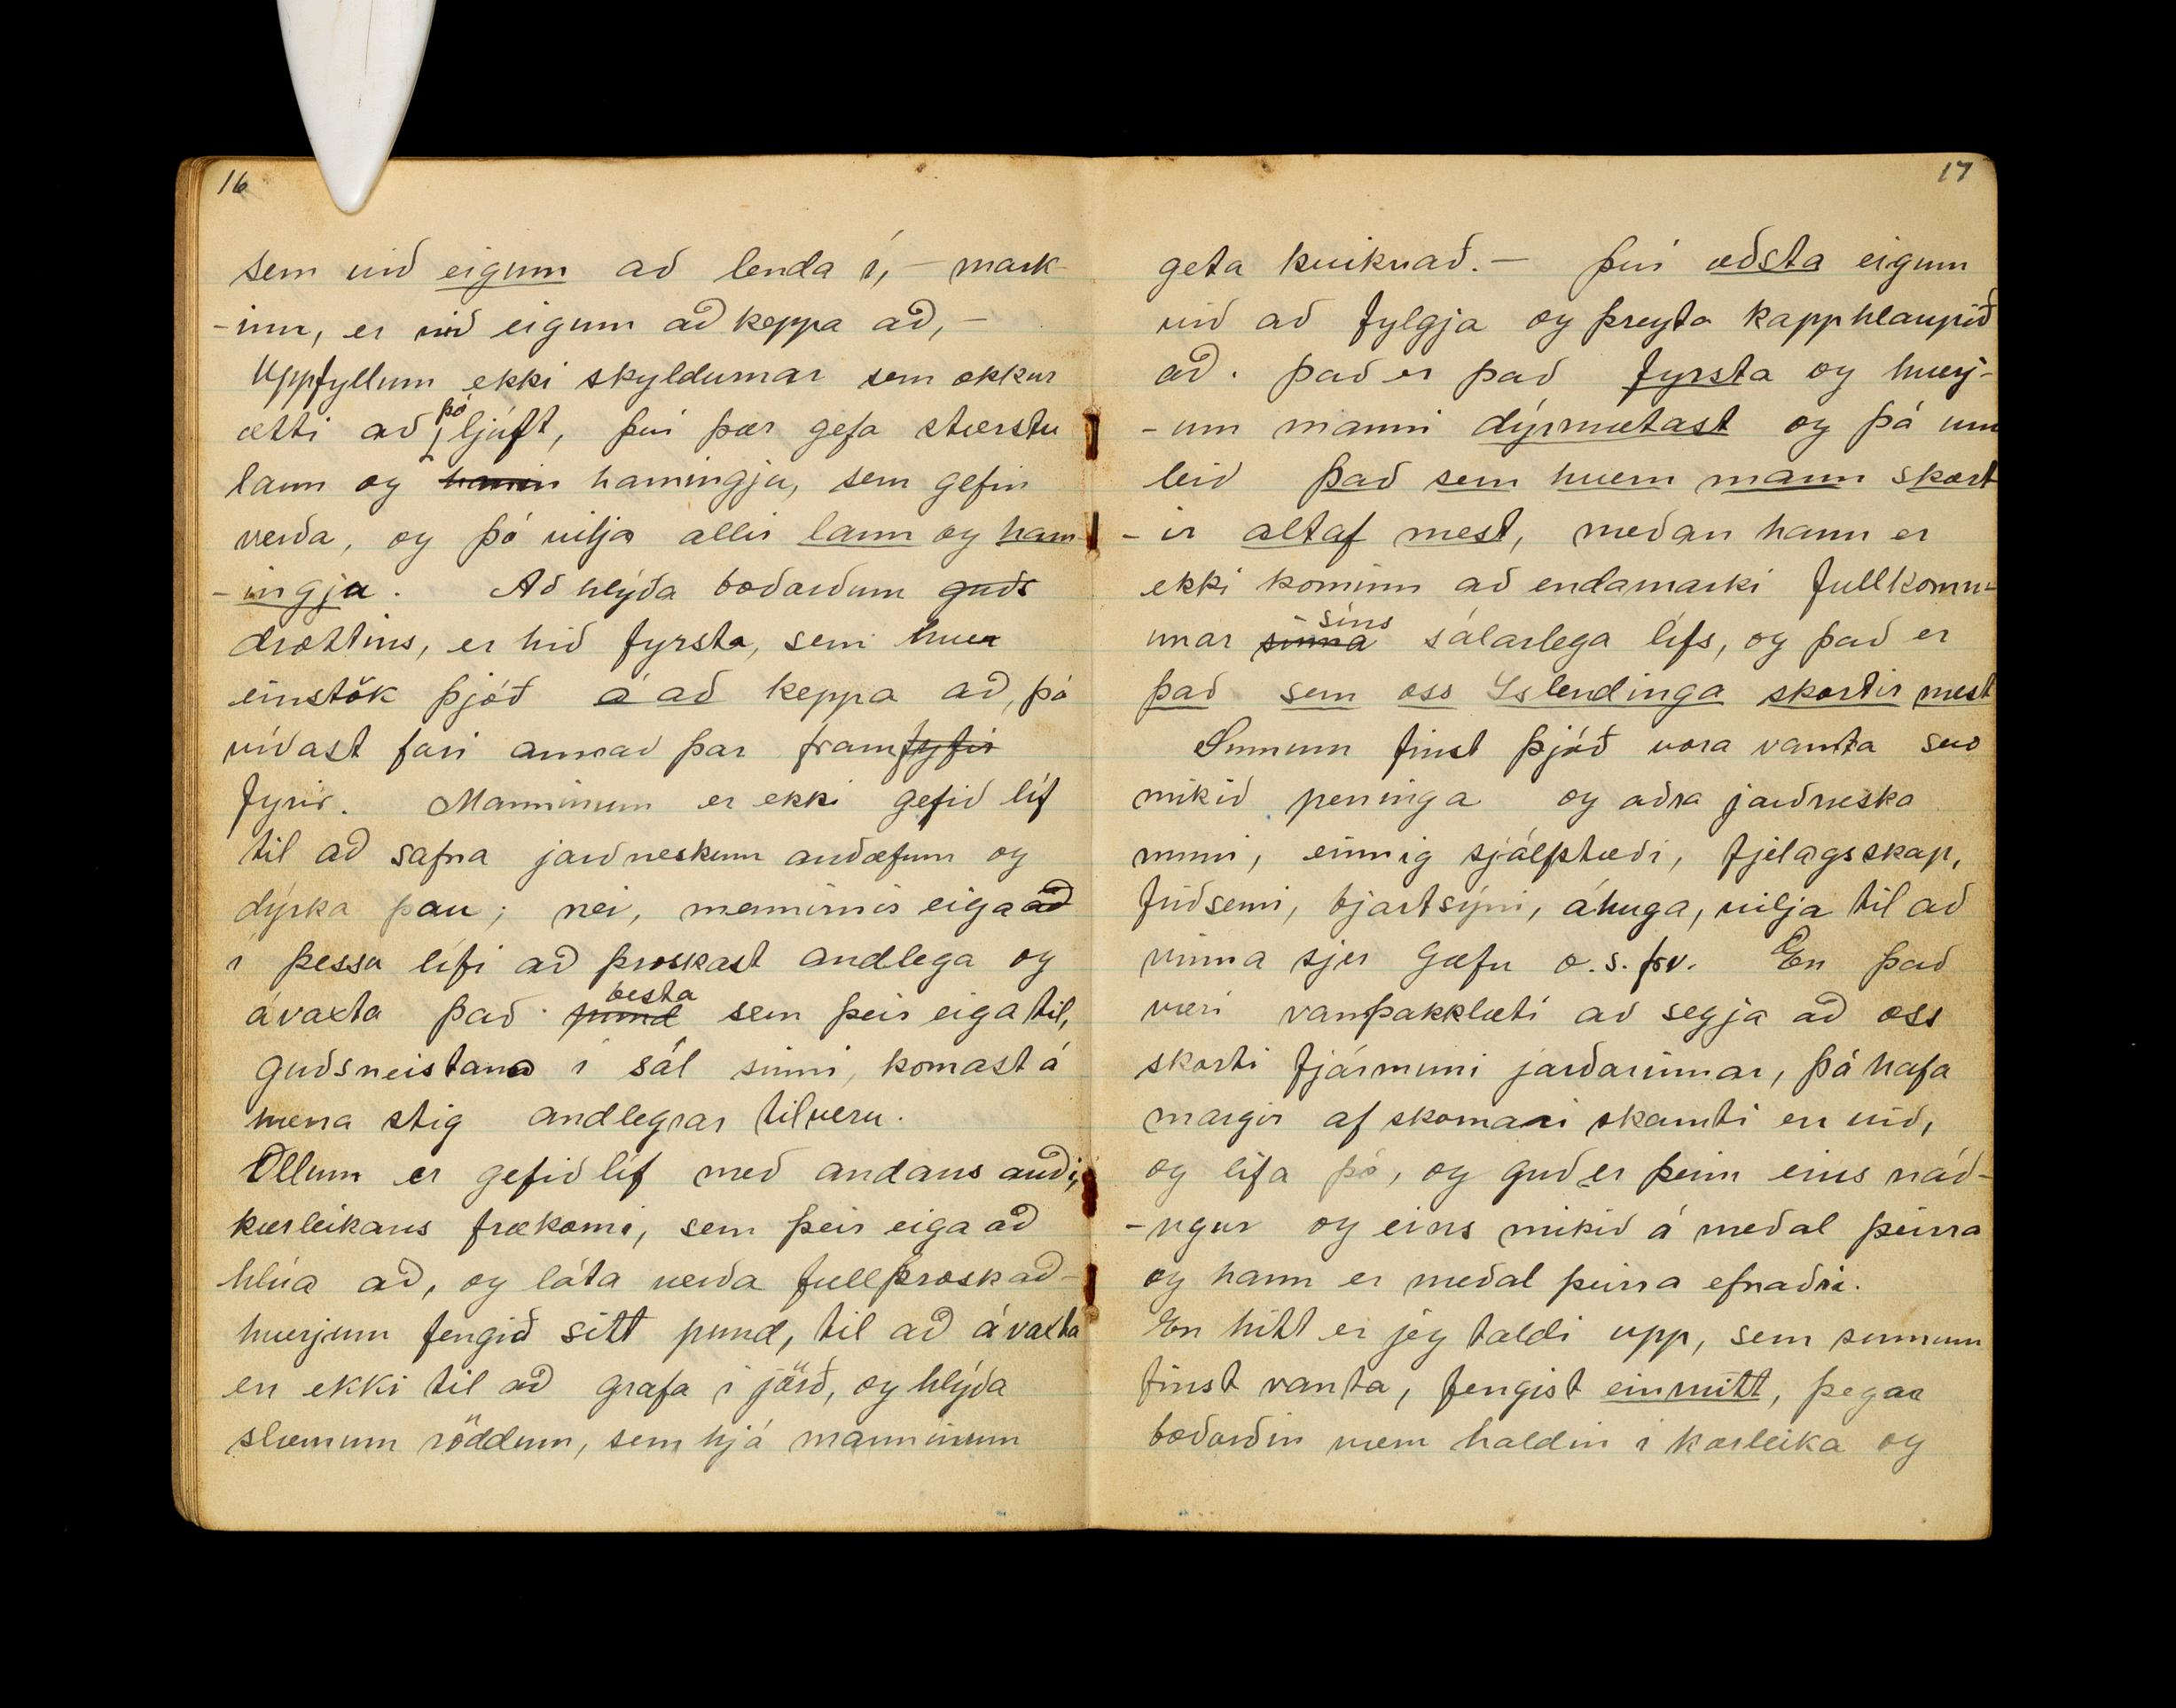 16
sem við eigum að lenda í, - mark-
-inn, er við eigum að keppa að, -
Uppfyllum ekki skyldurnar sem okkur
ætti að þó ljúft, því þær gefa stærstu
laun og hamin hamingju, sem gefin
verða, og þó vilja allir laun og ham-
-ingja. Að hlýða boðorðum guðs
drottins, er hið fyrsta, sem hver
einstök þjóð á að keppa að, þó
víðast fari annað þar fram fyfir
fyrir. Manninum er ekki gefið líf
til að safna jarðneskum auðæfum og
dýrka þau; nei, mennirnir eiga að
í þessu lífi að þroskast andlega og
ávaxta það pund besta sem þeir eiga til,
guðsneistana í sál sinni, komast á
hærra stig andlegrar tilveru.
Öllum er gefið líf með andans auði,
kærleikans frækorni, sem þeir eiga að
hlúa að, og láta verða fullþroskað -
hverjum fengið sitt pund, til að ávaxta
en ekki til að grafa í jörð, og hlýða
slæmum röddum, sem hjá manninum
17
geta kviknað. - því æðsta eigum
við að fylgja og þreyta kapphlaupið
að. það er það fyrsta og hverj-
-um manni dýrmætast og þá um
leið það sem hvern mann skort
-ir altaf mest, meðan hann er
ekki kominn að endamarki fullkomn-
unar sinna síns sálarlega lífs, og það er
það sem oss Islendinga skortir mest
Sumum finst þjóð vora vanta svo
mikið peninga og aðra jarðneska
muni, einnig sjálfstæði, fjelagsskap,
friðsemi, bjartsýni, áhuga, vilja til að
vinna sjer gæfu o.s.frv. En það
væri vanþakklæti að segja að oss
skorti fjármuni jarðarinnar, þá hafa
margir af skornari skamti en við,
og lifa þó, og guð er þeim eins náð-
-ugur og eins mikið á meðal þeirra
og hann er meðal þeirra efnaðri.
En hitt er jeg taldi upp, sem sumum
finst vanta, fengist einmitt, þegar
boðorðin væru haldin í kærleika og